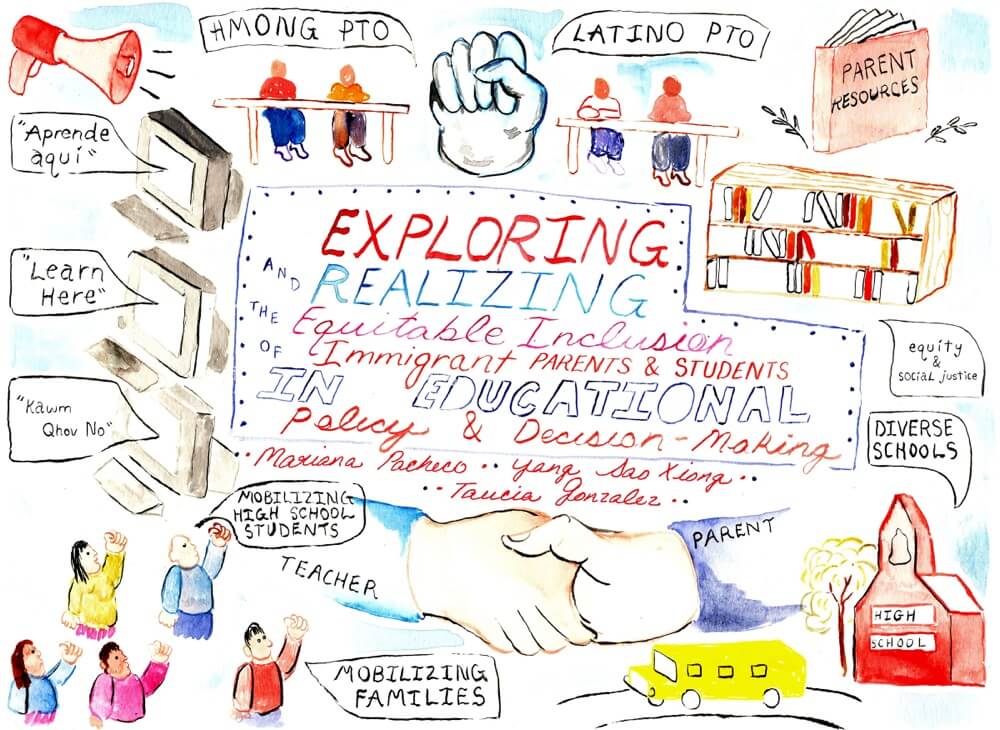 HMONG PTO
LATINO PTO
PARENT
RESOURCES
"Aprende
aquí"
"Learn
Here"
"Kawm
Qhov No"
EXPLORING
AND REALIZING
THE Equitable Inclusion
OF Immigrant PARENTS & STUDENTS
IN EDUCATIONAL
Policy & Decision-Making
Mariana Pacheco •• Yang Sao Xiong ••
•• Taucia Gonzalez ••
equity
&
social justice
DIVERSE
SCHOOLS
MOBILIZING
HIGH SCHOOL
STUDENTS
TEACHER
PARENT
HIGH
SCHOOL
MOBILIZING
FAMILIES